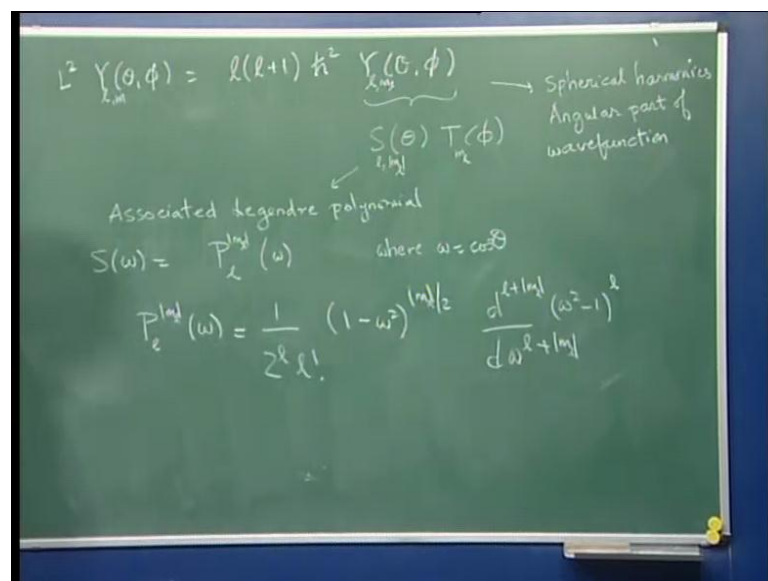 L² Y_{l,m}(θ,φ) = l(l+1) ħ² Y_{l,m_l}(θ,φ) → Spherical harmonics
Angular part of
wavefunction
S_{l,|m_l|}(θ) T_{m_l}(φ)
Associated Legendre polynomial
S(ω) = P_l^{|m_l|}(ω) where ω = cosθ
P_l^{|m_l|}(ω) = \frac{1}{2^l l!} (1-ω²)^{|m_l|/2} \frac{d^{l+|m_l|}}{dω^{l+|m_l|}} (ω²-1)^l